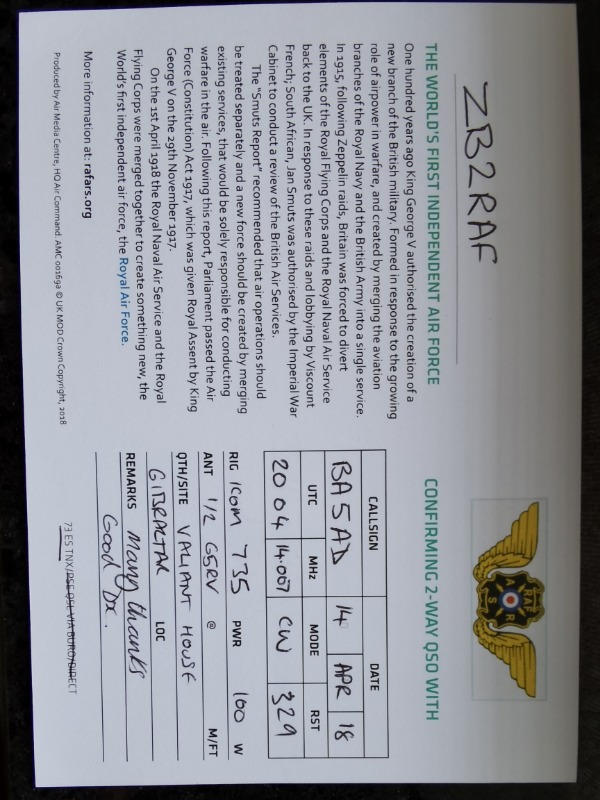 ZB2RAF
THE WORLD'S FIRST INDEPENDENT AIR FORCE
One hundred years ago King George V authorised the creation of a
new branch of the British military. Formed in response to the growing
role of airpower in warfare, and created by merging the aviation
branches of the Royal Navy and the British Army into a single service.
In 1915, following Zeppelin raids, Britain was forced to divert
elements of the Royal Flying Corps and the Royal Naval Air Service
back to the UK. In response to these raids and lobbying by Viscount
French; South African, Jan Smuts was authorised by the Imperial War
Cabinet to conduct a review of the British Air Services.
The "Smuts Report" recommended that air operations should
be treated separately and a new force should be created by merging
existing services, that would be solely responsible for conducting
warfare in the air. Following this report, Parliament passed the Air
Force (Constitution) Act 1917, which was given Royal Assent by King
George V on the 29th November 1917.
On the 1st April 1918 the Royal Naval Air Service and the Royal
Flying Corps were merged together to create something new, the
World's first independent air force, the Royal Air Force.
More information at: rafars.org
Produced by Air Media Centre, HQ Air Command. AMC 001692 © UK MOD Crown Copyright, 2018
RAF
A R
S
CONFIRMING 2-WAY QSO WITH
CALLSIGN DATE
BA5AD 14 APR 18
UTC MHz MODE RST
2004 14.007 CW 329
RIG ICOM 735 PWR 100 W
ANT 1/2 G5RV @ M/FT
QTH/SITE VALIANT HOUSE
GIBRALTAR LOC
REMARKS Many thanks
Good Dx.
73 ES TNX/PSE QSL VIA BURO/DIRECT